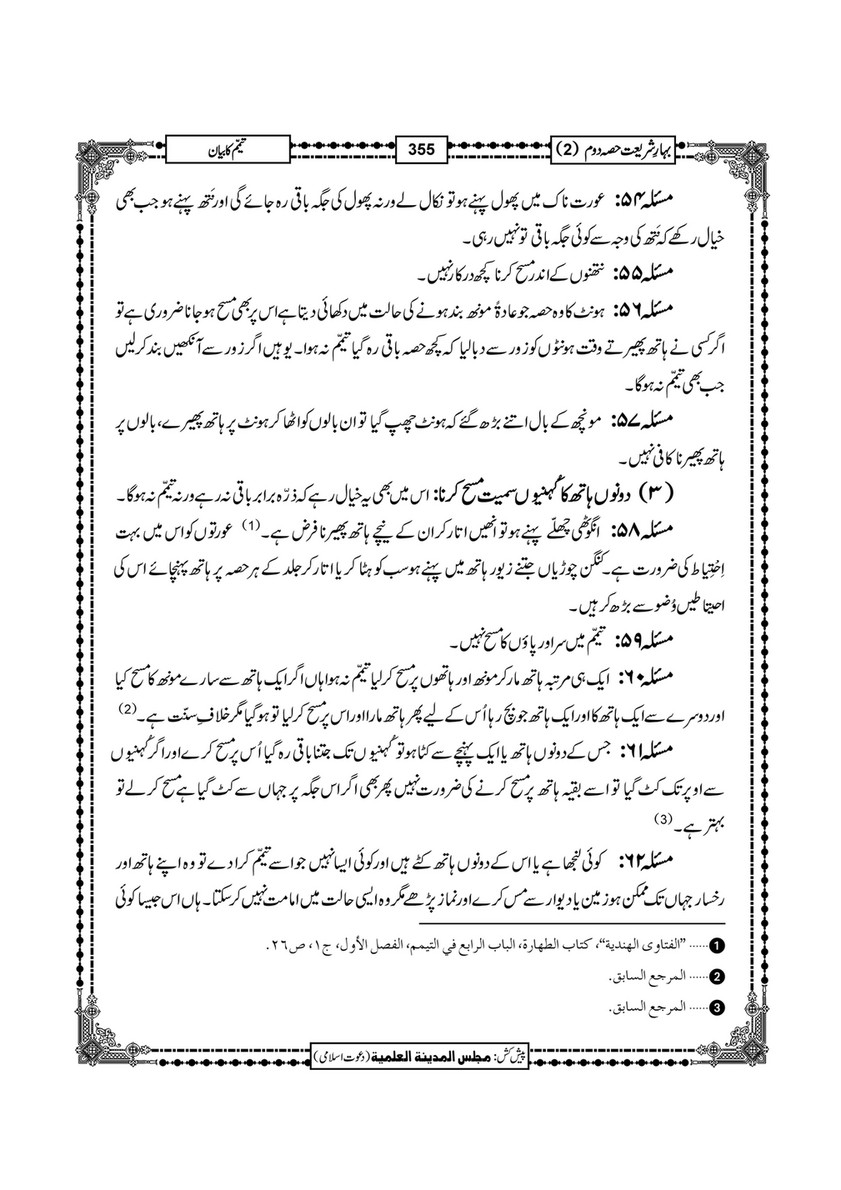 بہارِ شریعت حصہ دوم (2)
355
تیمّم کا بیان
مسئلہ ۵۴: عورت ناک میں پھول پہنے ہو تو نکال لے ورنہ پھول کی جگہ باقی رہ جائے گی اور نَتھ پہنے ہو جب بھی
خیال رکھے کہ نَتھ کی وجہ سے کوئی جگہ باقی تو نہیں رہی۔
مسئلہ ۵۵: نتھنوں کے اندر مسح کرنا کچھ درکار نہیں۔
مسئلہ ۵۶: ہونٹ کا وہ حصہ جو عادۃً مونھ بند ہونے کی حالت میں دکھائی دیتا ہے اس پر بھی مسح ہو جانا ضروری ہے تو
اگر کسی نے ہاتھ پھیرتے وقت ہونٹوں کو زور سے دبا لیا کہ کچھ حصہ باقی رہ گیا تیمّم نہ ہوا۔ یوہیں اگر زور سے آنکھیں بند کر لیں
جب بھی تیمّم نہ ہوگا۔
مسئلہ ۵۷: مونچھ کے بال اتنے بڑھ گئے کہ ہونٹ چھپ گیا تو ان بالوں کو اٹھا کر ہونٹ پر ہاتھ پھیرے، بالوں پر
ہاتھ پھیرنا کافی نہیں۔
(۳) دونوں ہاتھ کا کُہنیوں سمیت مسح کرنا: اس میں بھی یہ خیال رہے کہ ذرّہ برابر باقی نہ رہے ورنہ تیمّم نہ ہوگا۔
مسئلہ ۵۸: انگوٹھی چھلّے پہنے ہو تو انھیں اتار کر ان کے نیچے ہاتھ پھیرنا فرض ہے۔(1) عورتوں کو اس میں بہت
اِحْتِیاط کی ضرورت ہے۔ کنگن چوڑیاں جتنے زیور ہاتھ میں پہنے ہو سب کو ہٹا کر یا اتار کر جلد کے ہر حصہ پر ہاتھ پہنچائے اس کی
احتیاطیں وُضو سے بڑھ کر ہیں۔
مسئلہ ۵۹: تیمّم میں سر اور پاؤں کا مسح نہیں۔
مسئلہ ۶۰: ایک ہی مرتبہ ہاتھ مار کر مونھ اور ہاتھوں پر مسح کر لیا تیمّم نہ ہوا ہاں اگر ایک ہاتھ سے سارے مونھ کا مسح کیا
اور دوسرے سے ایک ہاتھ کا اور ایک ہاتھ جو بچ رہا اُس کے لیے پھر ہاتھ مارا اور اس پر مسح کر لیا تو ہو گیا مگر خلافِ سنّت ہے۔(2)
مسئلہ ۶۱: جس کے دونوں ہاتھ یا ایک پہنچے سے کٹا ہو تو کُہنیوں تک جتنا باقی رہ گیا اُس پر مسح کرے اور اگر کُہنیوں
سے اوپر تک کٹ گیا تو اسے بقیہ ہاتھ پر مسح کرنے کی ضرورت نہیں پھر بھی اگر اس جگہ پر جہاں سے کٹ گیا ہے مسح کر لے تو
بہتر ہے۔(3)
مسئلہ ۶۲: کوئی لنجھا ہے یا اس کے دونوں ہاتھ کٹے ہیں اور کوئی ایسا نہیں جو اسے تیمّم کرا دے تو وہ اپنے ہاتھ اور
رخسار جہاں تک ممکن ہو زمین یا دیوار سے مس کرے اور نماز پڑھے مگر وہ ایسی حالت میں امامت نہیں کر سکتا۔ ہاں اس جیسا کوئی
1 ...... "الفتاوی الھندیة"، کتاب الطھارة، الباب الرابع في التیمم، الفصل الأول، ج۱، ص۲٦.
2 ...... المرجع السابق.
3 ...... المرجع السابق.
پیش کش: مجلس المدینة العلمیة (دعوت اسلامی)